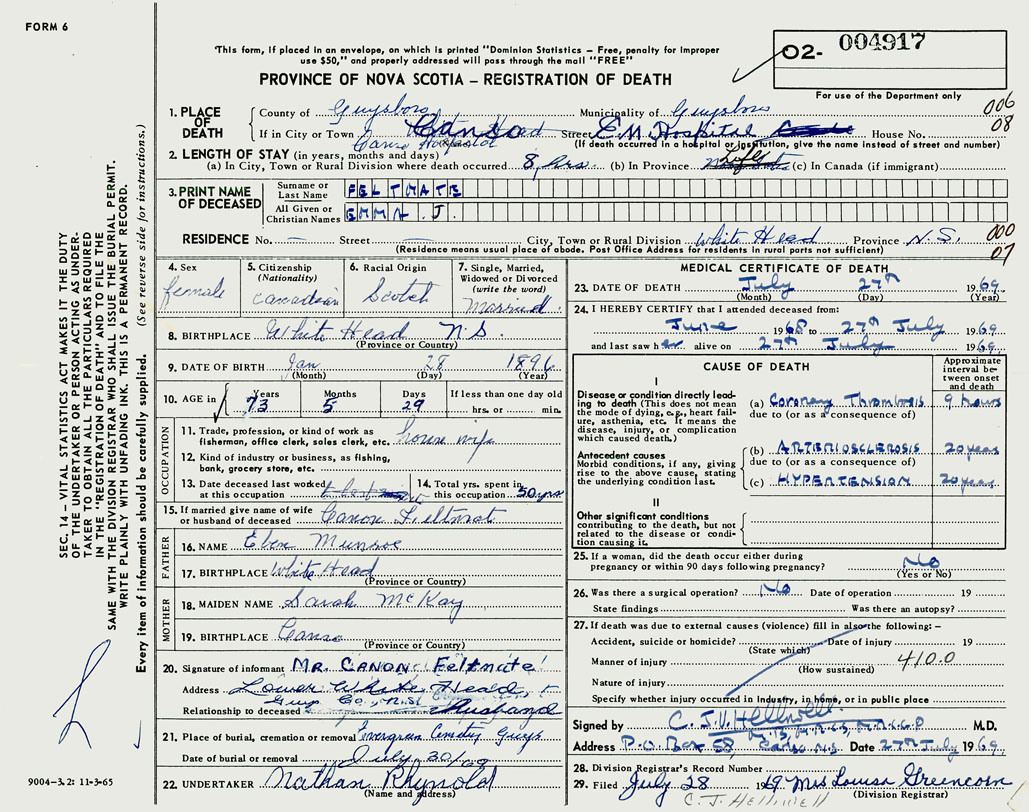 FORM 6
This form, if placed in an envelope, on which is printed "Dominion Statistics – Free, penalty for improper
use $50," and properly addressed will pass through the mail "FREE"
O2- 004917
PROVINCE OF NOVA SCOTIA – REGISTRATION OF DEATH
For use of the Department only
006
08
1. PLACE OF DEATH
County of Guysboro Municipality of Guysboro
If in City or Town Canso Street E.M. Hospital House No.
(If death occurred in a hospital or institution, give the name instead of street and number)
2. LENGTH OF STAY (in years, months and days)
(a) In City, Town or Rural Division where death occurred 8 hrs. (b) In Province Life (c) In Canada (if immigrant)
3. PRINT NAME OF DECEASED
Surname or Last Name FELTMATE
All Given or Christian Names EMMA .J.
RESIDENCE No. – Street – City, Town or Rural Division White Head Province N.S.
000
07
(Residence means usual place of abode. Post Office Address for residents in rural parts not sufficient)
4. Sex female
5. Citizenship (Nationality) Canadian
6. Racial Origin Scotch
7. Single, Married, Widowed or Divorced (write the word) Married
8. BIRTHPLACE White Head N.S.
(Province or Country)
9. DATE OF BIRTH Jan 28 1896
(Month) (Day) (Year)
10. AGE in Years 73 Months 5 Days 29 If less than one day old hrs. or min.
OCCUPATION
11. Trade, profession, or kind of work as fisherman, office clerk, sales clerk, etc. house wife
12. Kind of industry or business, as fishing, bank, grocery store, etc.
13. Date deceased last worked at this occupation
14. Total yrs. spent in this occupation 50 yrs
15. If married give name of wife or husband of deceased Canon Feltmat
FATHER
16. NAME Eben Munroe
17. BIRTHPLACE White Head
(Province or Country)
MOTHER
18. MAIDEN NAME Sarah McKay
19. BIRTHPLACE Canso
(Province or Country)
20. Signature of informant MR. CANON Feltmate
Address Lower White Head,
Guys Co. N.S.
Relationship to deceased Husband
21. Place of burial, cremation or removal Guys
Date of burial or removal July 30/69
22. UNDERTAKER Nathan Rhynold
(Name and address)
MEDICAL CERTIFICATE OF DEATH
23. DATE OF DEATH July 27th 1969
(Month) (Day) (Year)
24. I HEREBY CERTIFY that I attended deceased from:
June 1968 to 27th July 1969
and last saw her alive on 27th July 1969
CAUSE OF DEATH
Approximate interval between onset and death
I
Disease or condition directly leading to death (This does not mean the mode of dying, e.g., heart failure, asthenia, etc. It means the disease, injury, or complication which caused death.)
(a) Coronary Thrombosis 9 hours
due to (or as a consequence of)
Antecedent causes
Morbid conditions, if any, giving rise to the above cause, stating the underlying condition last.
(b) ARTERIOSCLEROSIS 20 years
due to (or as a consequence of)
(c) HYPERTENSION 20 years
II
Other significant conditions contributing to the death, but not related to the disease or condition causing it.
25. If a woman, did the death occur either during pregnancy or within 90 days following pregnancy? No
(Yes or No)
26. Was there a surgical operation? No Date of operation 19
State findings Was there an autopsy?
27. If death was due to external causes (violence) fill in also the following: –
Accident, suicide or homicide? Date of injury 19
(State which)
Manner of injury 410.0
(How sustained)
Nature of injury
Specify whether injury occurred in industry, in home, or in public place
Signed by C. J.V. Helliwell M.D.
Address P.O. Box 58, Canso N.S. Date 27th July 1969
28. Division Registrar's Record Number
29. Filed July 28 1969 Mrs Louisa Greencorn
(Division Registrar)
C. J. HELLIWELL
SEC. 14 – VITAL STATISTICS ACT MAKES IT THE DUTY
OF THE UNDERTAKER OR PERSON ACTING AS UNDER-
TAKER TO OBTAIN ALL THE PARTICULARS REQUIRED
IN THE "REGISTRATION OF DEATH" AND TO FILE THE
SAME WITH THE DIVISION REGISTRAR WHO SHALL ISSUE THE BURIAL PERMIT.
WRITE PLAINLY WITH UNFADING INK. THIS IS A PERMANENT RECORD.
Every item of information should be carefully supplied. (See reverse side for instructions.)
9004-3.2: 11-3-65